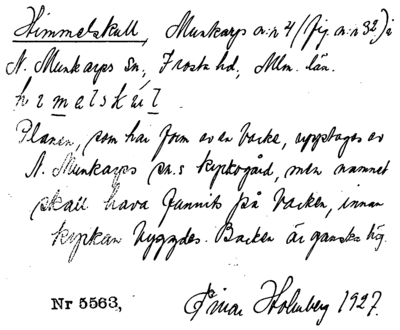 Himmelskull, Munkarps a:r 4 (fig. a:r 32) i
N. Munkarps sn, Frosta hd, Mlm. län.
Platsen, som har form av en backe, upptages av
N. Munkarps sn.s kyrkogård, men namnet
skall hava funnits på backen, innan
kyrkan byggdes. Backen är ganska hög.
Nr 5563, Einar Holmberg 1927.